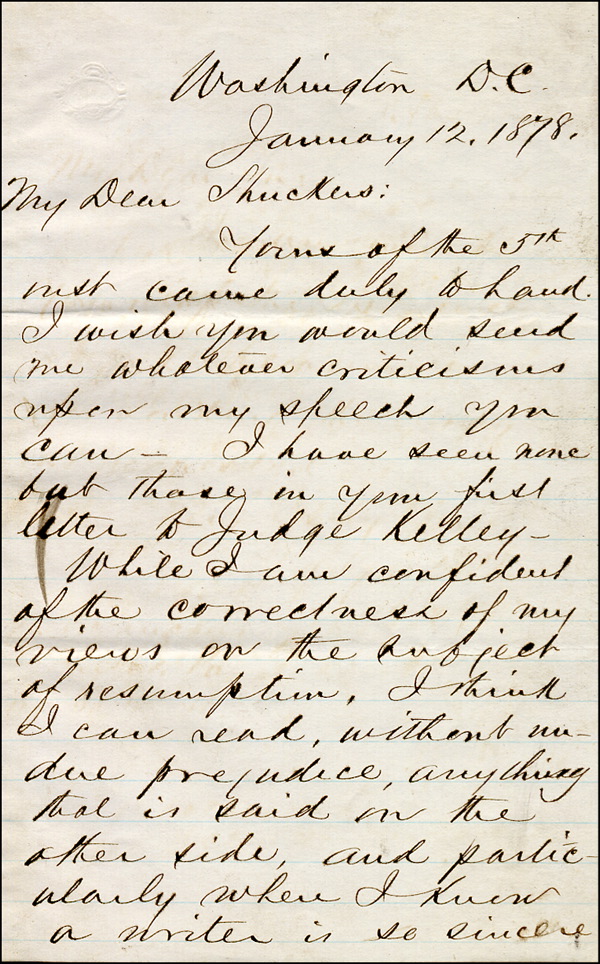 Washington D.C.
January 12, 1878.
My Dear Shuckers:
Yours of the 5th
inst came duly to hand.
I wish you would send
me whatever criticisms
upon my speech you
can – I have seen none
but those in your first
letter to Judge Kelley –
While I am confident
of the correctness of my
views on the subject
of resumption, I think
I can read, without un-
due prejudice, anything
that is said on the
other side, and partic-
ularly when I know
a writer is so sincere